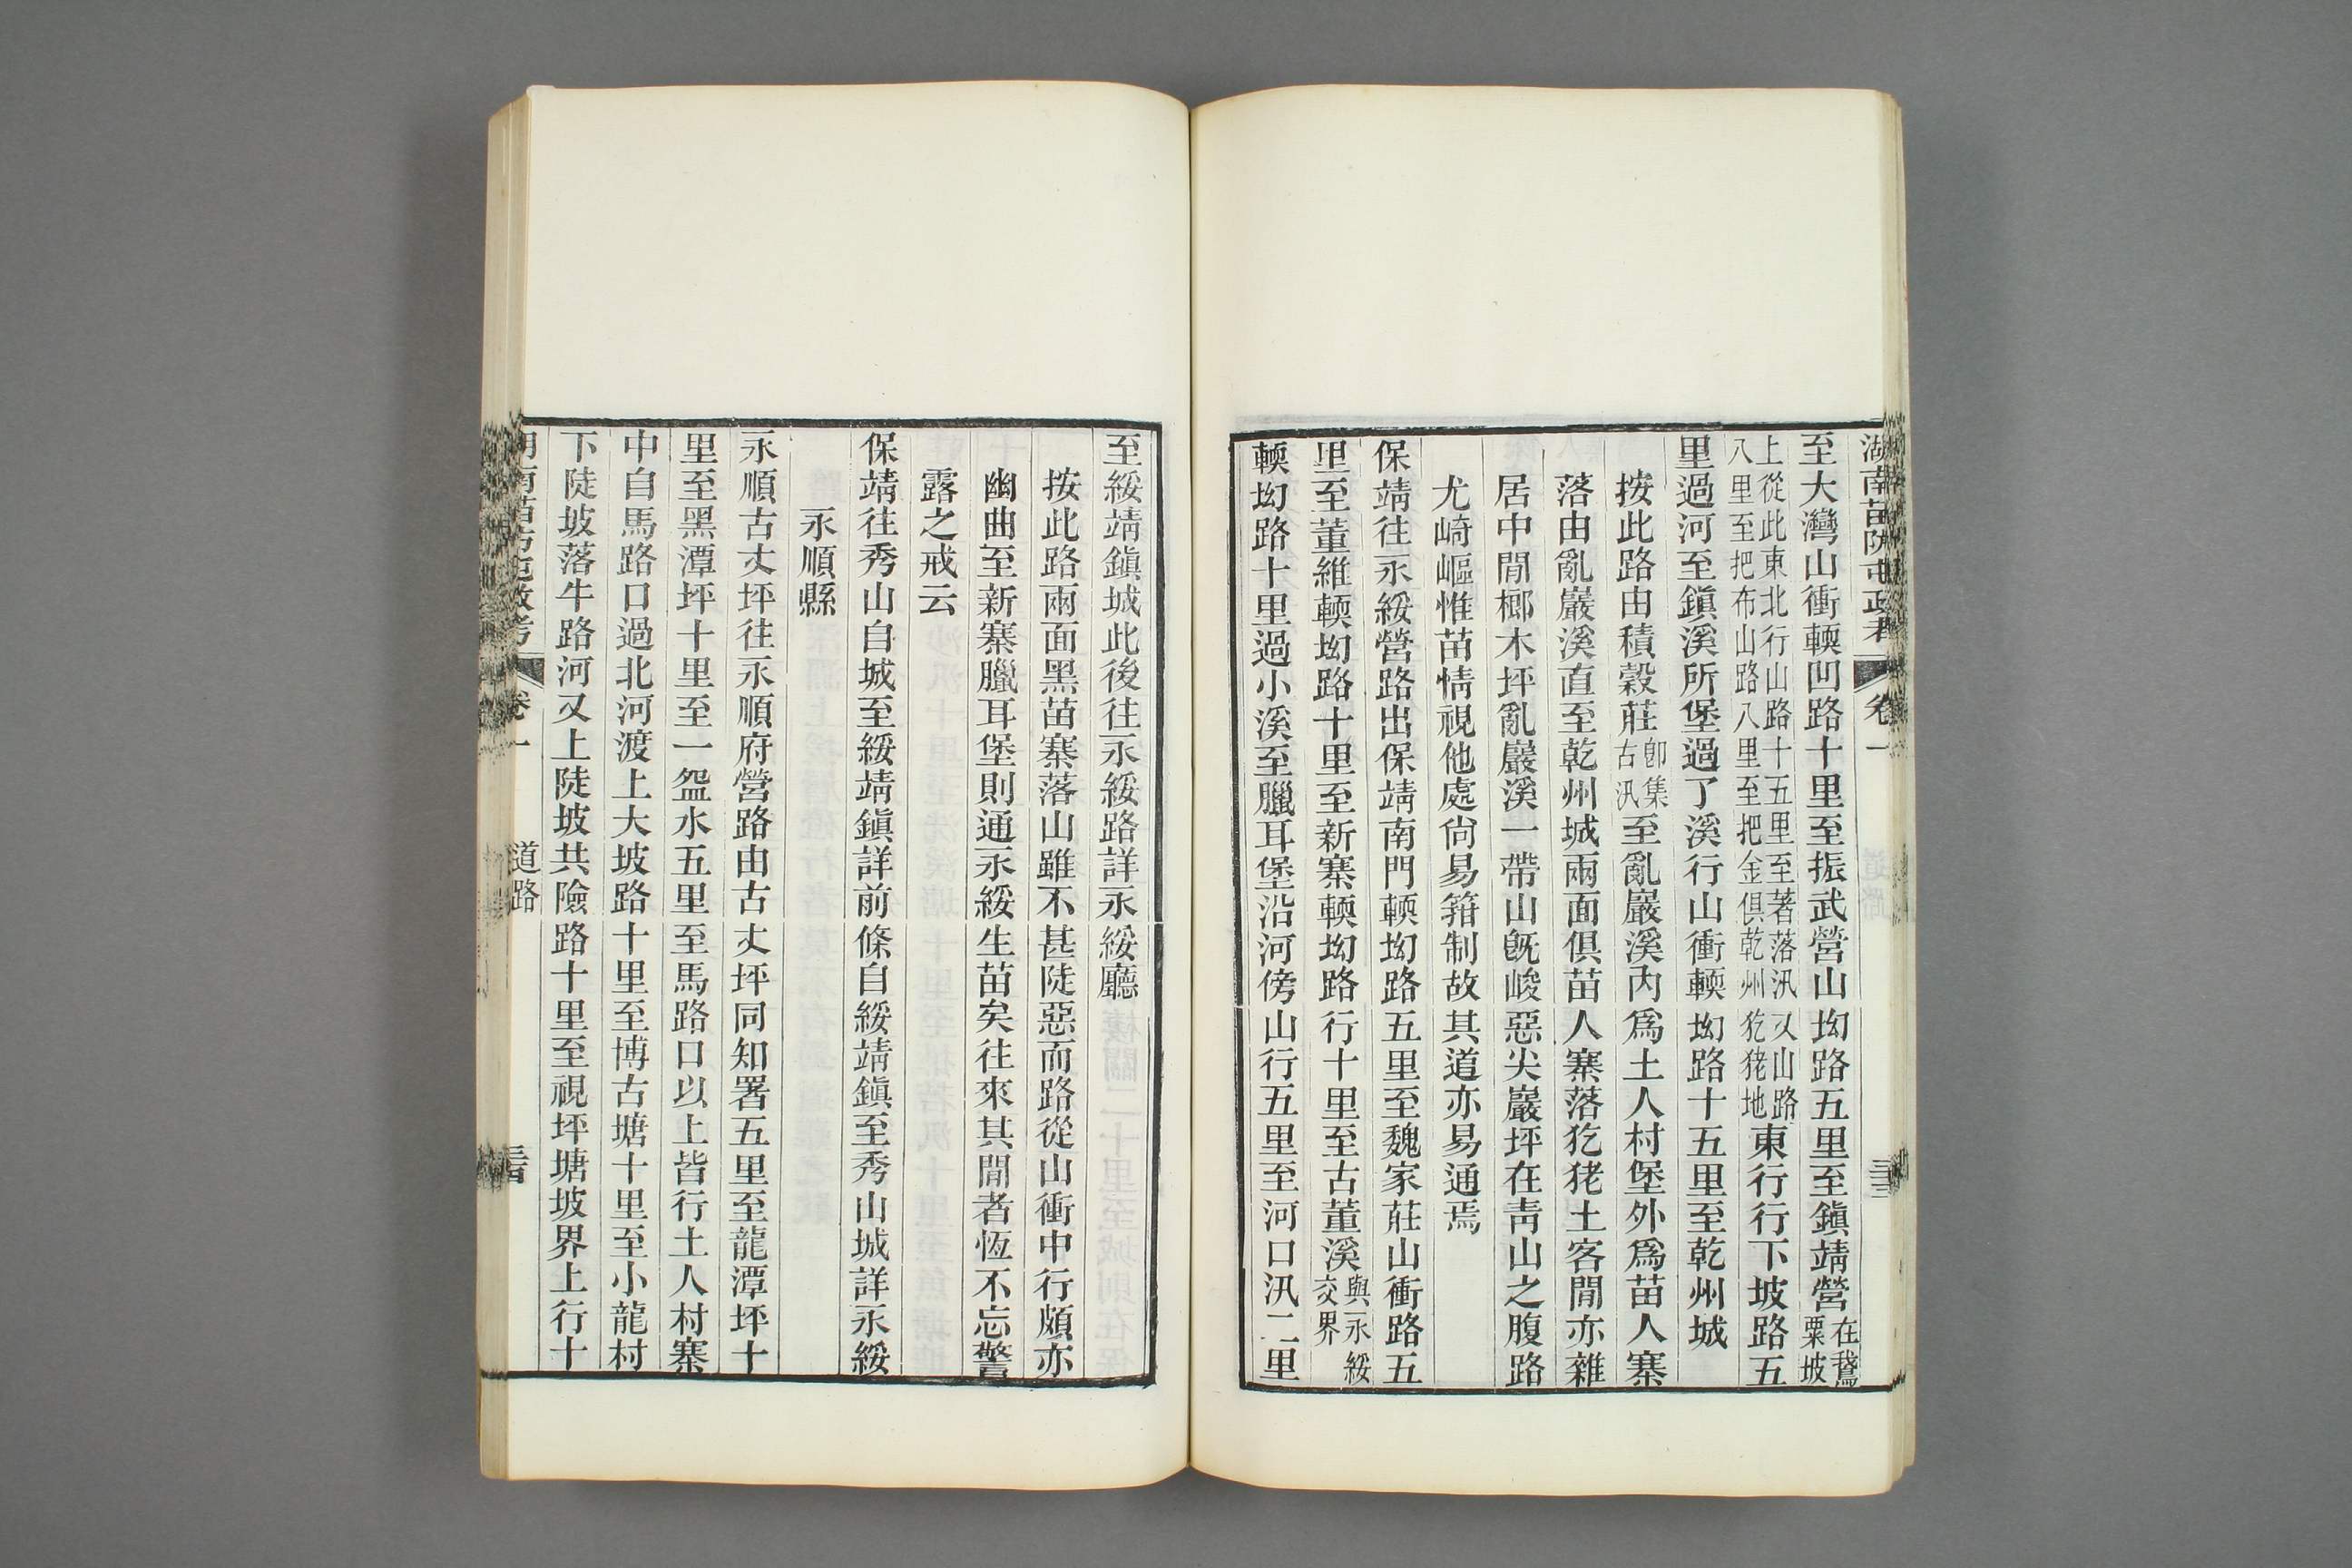 湖南苗防屯政考 卷一 三十三
至大灣山衝輭凹路十里至振武營山坳路五里至鎭靖營在鵞粟坡
上從此東北行山路十五里至著落汛又山路八里至把布山路八里至把金俱乾州犵狫地東行行下坡路五
里過河至鎭溪所堡過了溪行山衝輭坳路十五里至乾州城
按此路由積穀莊卽集古汛至亂巖溪內爲土人村堡外爲苗人寨
落由亂巖溪直至乾州城兩面俱苗人寨落犵狫土客閒亦雜
居中閒榔木坪亂巖溪一帶山旣峻惡尖巖坪在靑山之腹路
尤崎嶇惟苗情視他處尙易箝制故其道亦易通焉
保靖往永綏營路出保靖南門輭坳路五里至魏家莊山衝路五
里至董維輭坳路十里至新寨輭坳路行十里至古董溪與永綏交界
輭坳路十里過小溪至臘耳堡沿河傍山行五里至河口汛二里
至綏靖鎭城此後往永綏路詳永綏廳
按此路兩面黑苗寨落山雖不甚陡惡而路從山衝中行頗亦
幽曲至新寨臘耳堡則通永綏生苗矣往來其閒者恆不忘警
露之戒云
保靖往秀山自城至綏靖鎭詳前條自綏靖鎭至秀山城詳永綏
永順縣
永順古丈坪往永順府營路由古丈坪同知署五里至龍潭坪十
里至黑潭坪十里至一盌水五里至馬路口以上皆行土人村寨
中自馬路口過北河渡上大坡路十里至博古塘十里至小龍村
下陡坡落牛路河又上陡坡共險路十里至視坪塘坡界上行十
卷一 道路